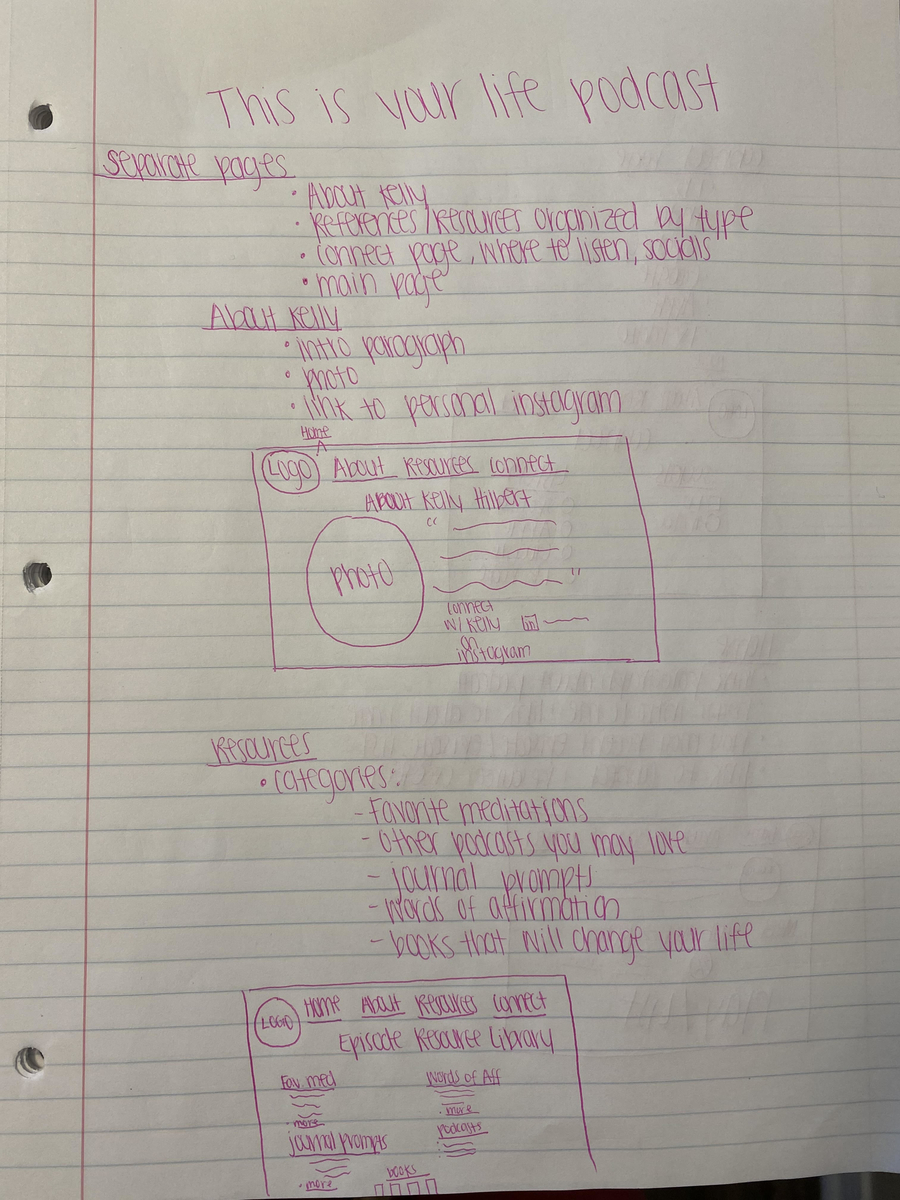 This is your life podcast
separate pages
· About Kelly
· References/Resources organized by type
· connect page, where to listen, socials
· main page
About Kelly
· intro paragraph
· photo
· link to personal instagram
Home
^
LOGO About Resources connect
About Kelly Hilbert
"
photo
"
connect
w/ Kelly
on
instagram
Resources
· categories:
- Favorite meditations
- other podcasts you may love
- journal prompts
- words of affirmation
- books that will change your life
LOGO Home About Resources connect
Episode Resource Library
Fav. med
Words of Aff
· more
· more
podcasts
journal prompts
· more
books